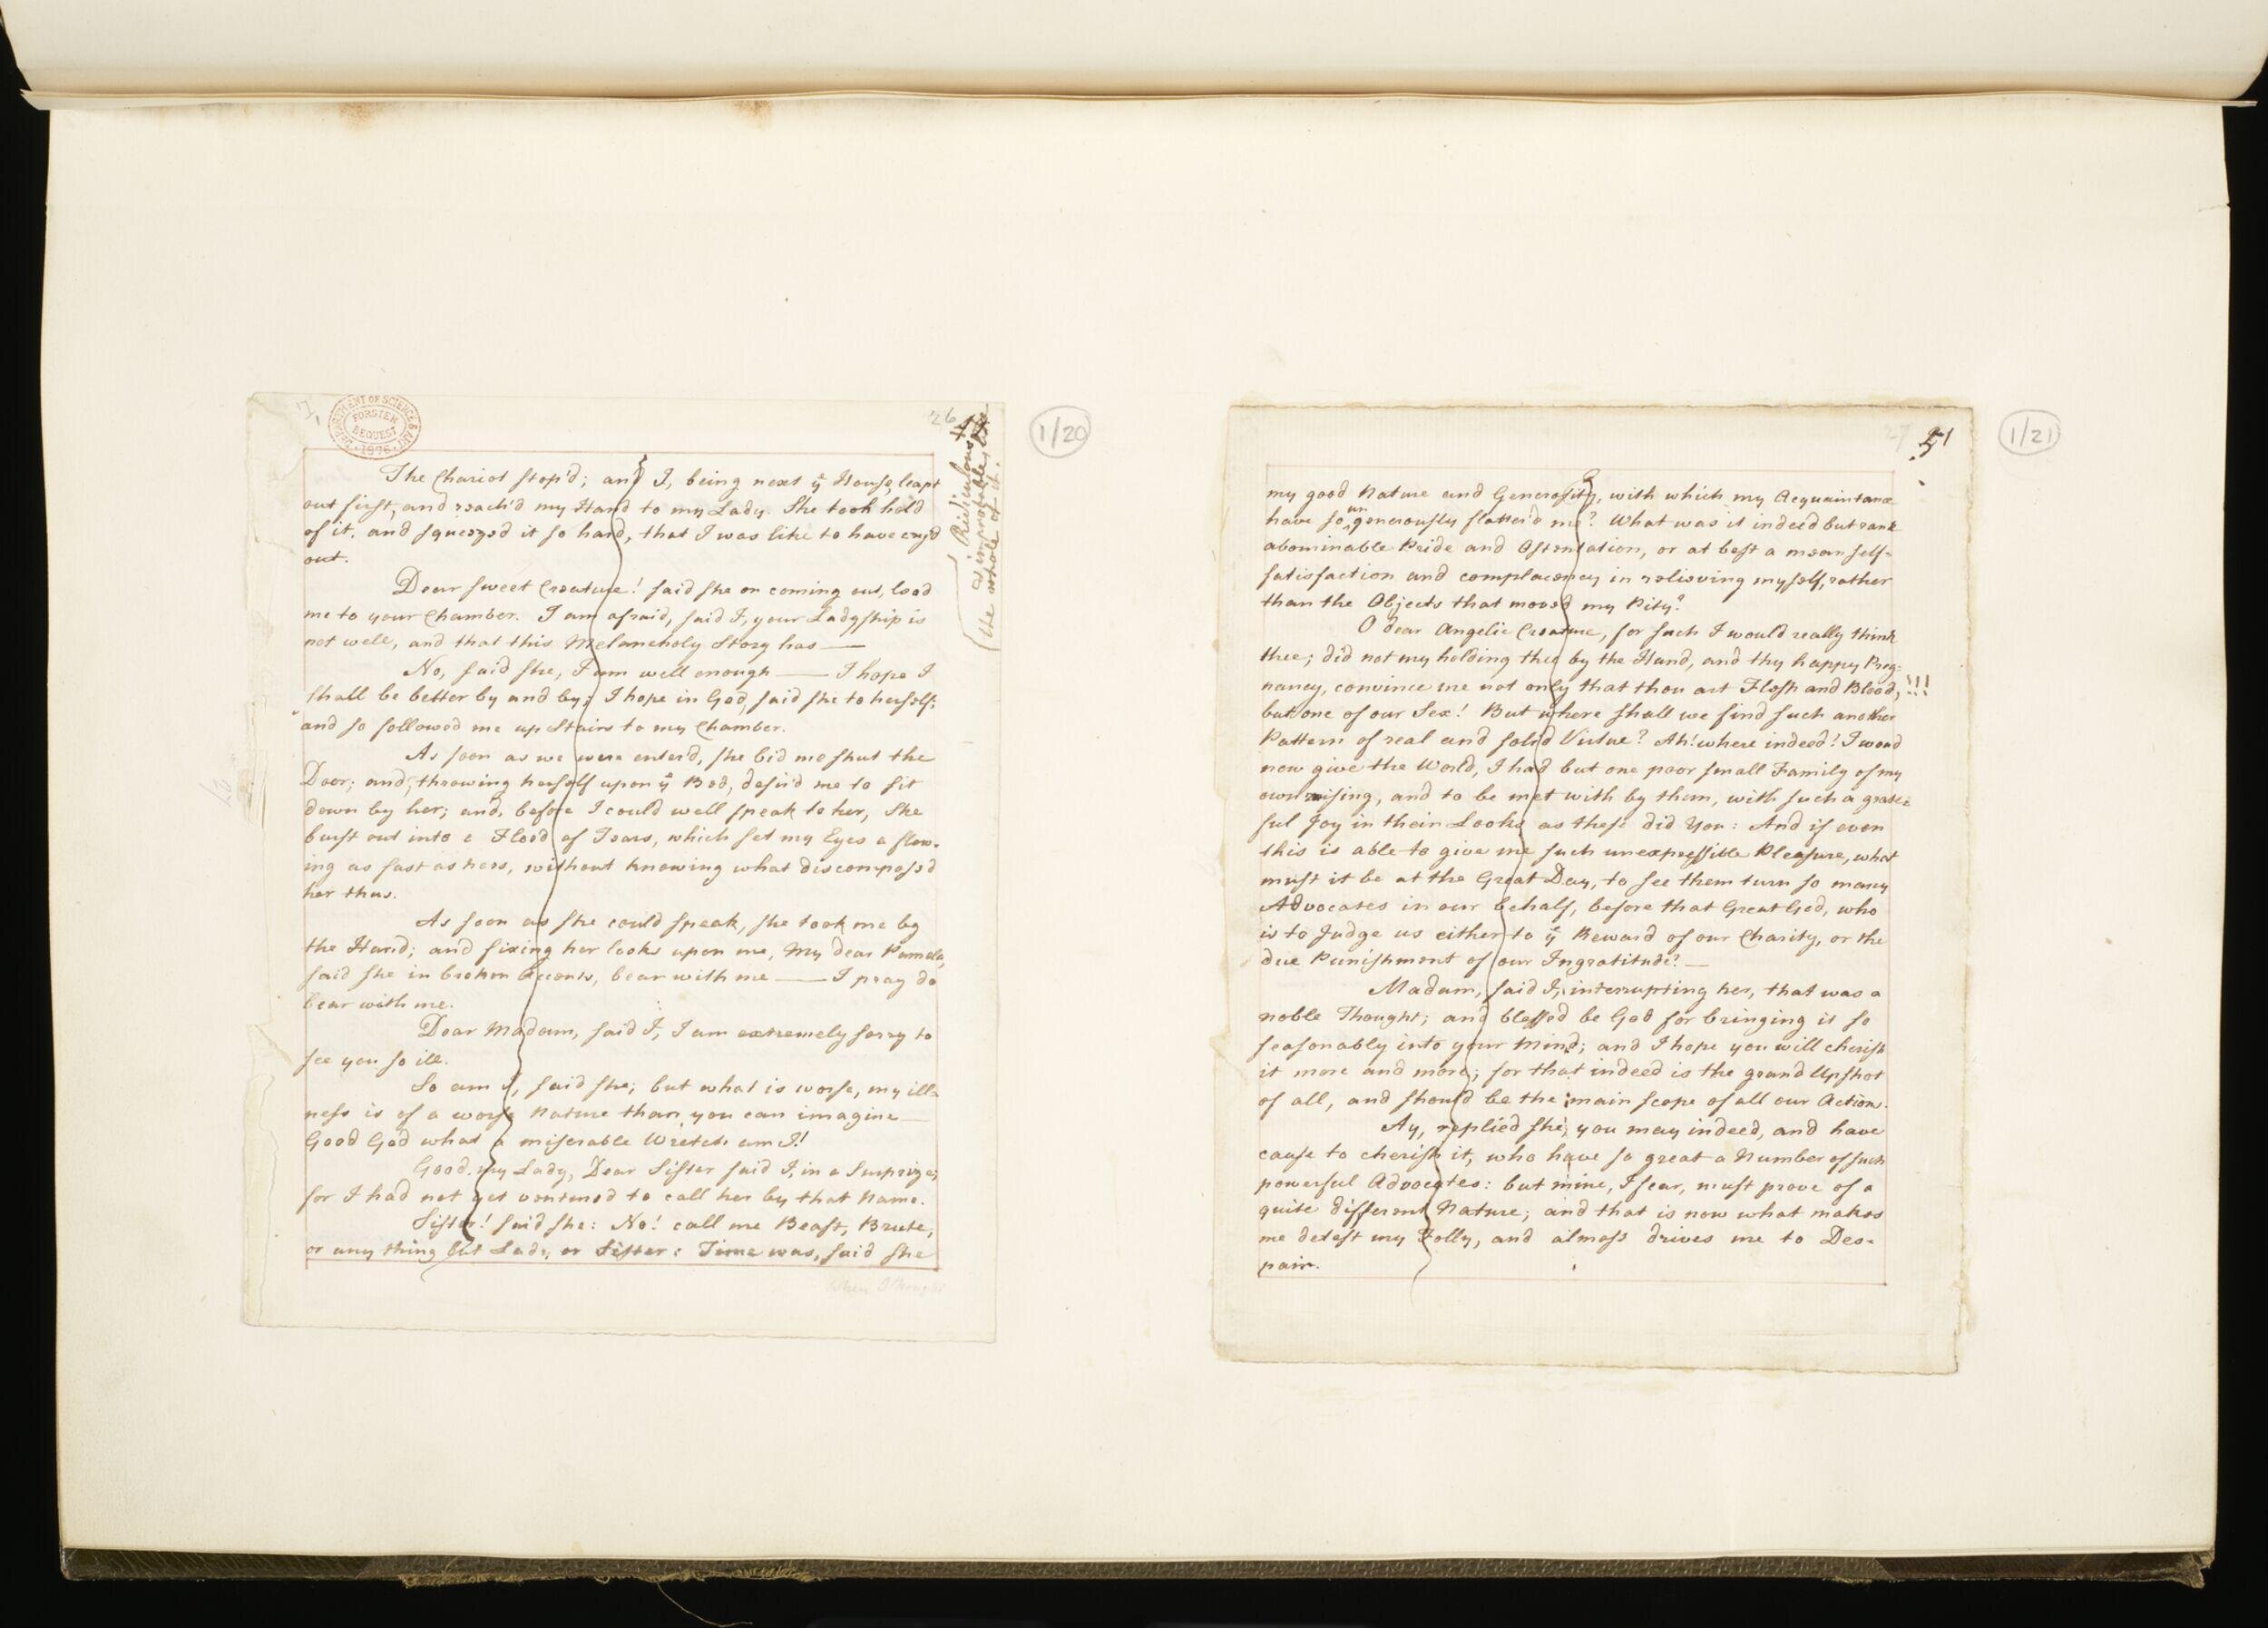 26
DEPARTMENT OF SCIENCE & ART
FORSTER
BEQUEST
1876
Ridiculous
& improbable
the whole of it.
1/20
The Chariot stop'd; and I, being next yᵉ House, leapt
out first, and reach'd my Hand to my Lady. She took hold
of it, and squeezed it so hard, that I was like to have cry'd
out.
Dear sweet Creature! said she on coming out, lead
me to your Chamber. I am afraid, said I, your Ladyship is
not well, and that this Melancholy Story has —
No, said she, I am well enough — I hope I
shall be better by and by; I hope in God, said she to herself;
and so followed me up Stairs to my Chamber.
As soon as we were enter'd, she bid me shut the
Door; and, throwing herself upon yᵉ Bed, desir'd me to sit
down by her; and, before I could well speak to her, She
burst out into a Flood of Tears, which set my Eyes a flow-
ing as fast as hers, without knowing what discompos'd
her thus.
As soon as she could speak, she took me by
the Hand; and fixing her looks upon me, My dear Pamela,
said she in broken Accents, bear with me — I pray do
bear with me.
Dear Madam, said I, I am extremely sorry to
see you so ill.
So am I, said she; but what is worse, my ill-
ness is of a worse Nature than you can imagine —
Good God what a miserable Wretch am I!
Good my Lady, Dear Sister said I, in a Surprize;
for I had not yet ventured to call her by that Name.
Sister! said she: No! call me Beast, Brute,
or any thing but Lady, or Sister: Time was, said she
when I thought
27
51
1/21
my good Nature and Generosity, with which my Acquaintance
have so ungenerously flatter'd me? What was it indeed but rank
abominable Pride and Ostentation, or at best a mean self-
satisfaction and complacency in relieving myself, rather
than the Objects that moved my Pity?
O dear Angelic Creature, for such I would really think
thee; did not my holding thee by the Hand, and thy happy Preg-
nancy, convince me not only that thou art Flesh and Blood, !!!
but one of our Sex! But where shall we find such another
Pattern of real and solid Virtue? Ah! where indeed! I woud
now give the World, I had but one poor small Family of my
own raising, and to be met with by them, with such a grate-
ful Joy in their Looks as these did You: And if even
this is able to give me such unexpressible Pleasure, what
must it be at the Great Day, to see them turn so many
Advocates in our behalf, before that Great God, who
is to Judge us either to yᵉ Reward of our Charity, or the
due Punishment of our Ingratitude? —
Madam, said I, interrupting her, that was a
noble Thought; and blessed be God for bringing it so
seasonably into your Mind; and I hope you will cherish
it more and more; for that indeed is the grand Upshot
of all, and should be the main scope of all our Action.
Ay, replied she; you may indeed, and have
cause to cherish it, who have so great a Number of such
powerful Advocates: but mine, I fear, must prove of a
quite different Nature; and that is now what makes
me detest my Folly, and almost drives me to Des-
pair.